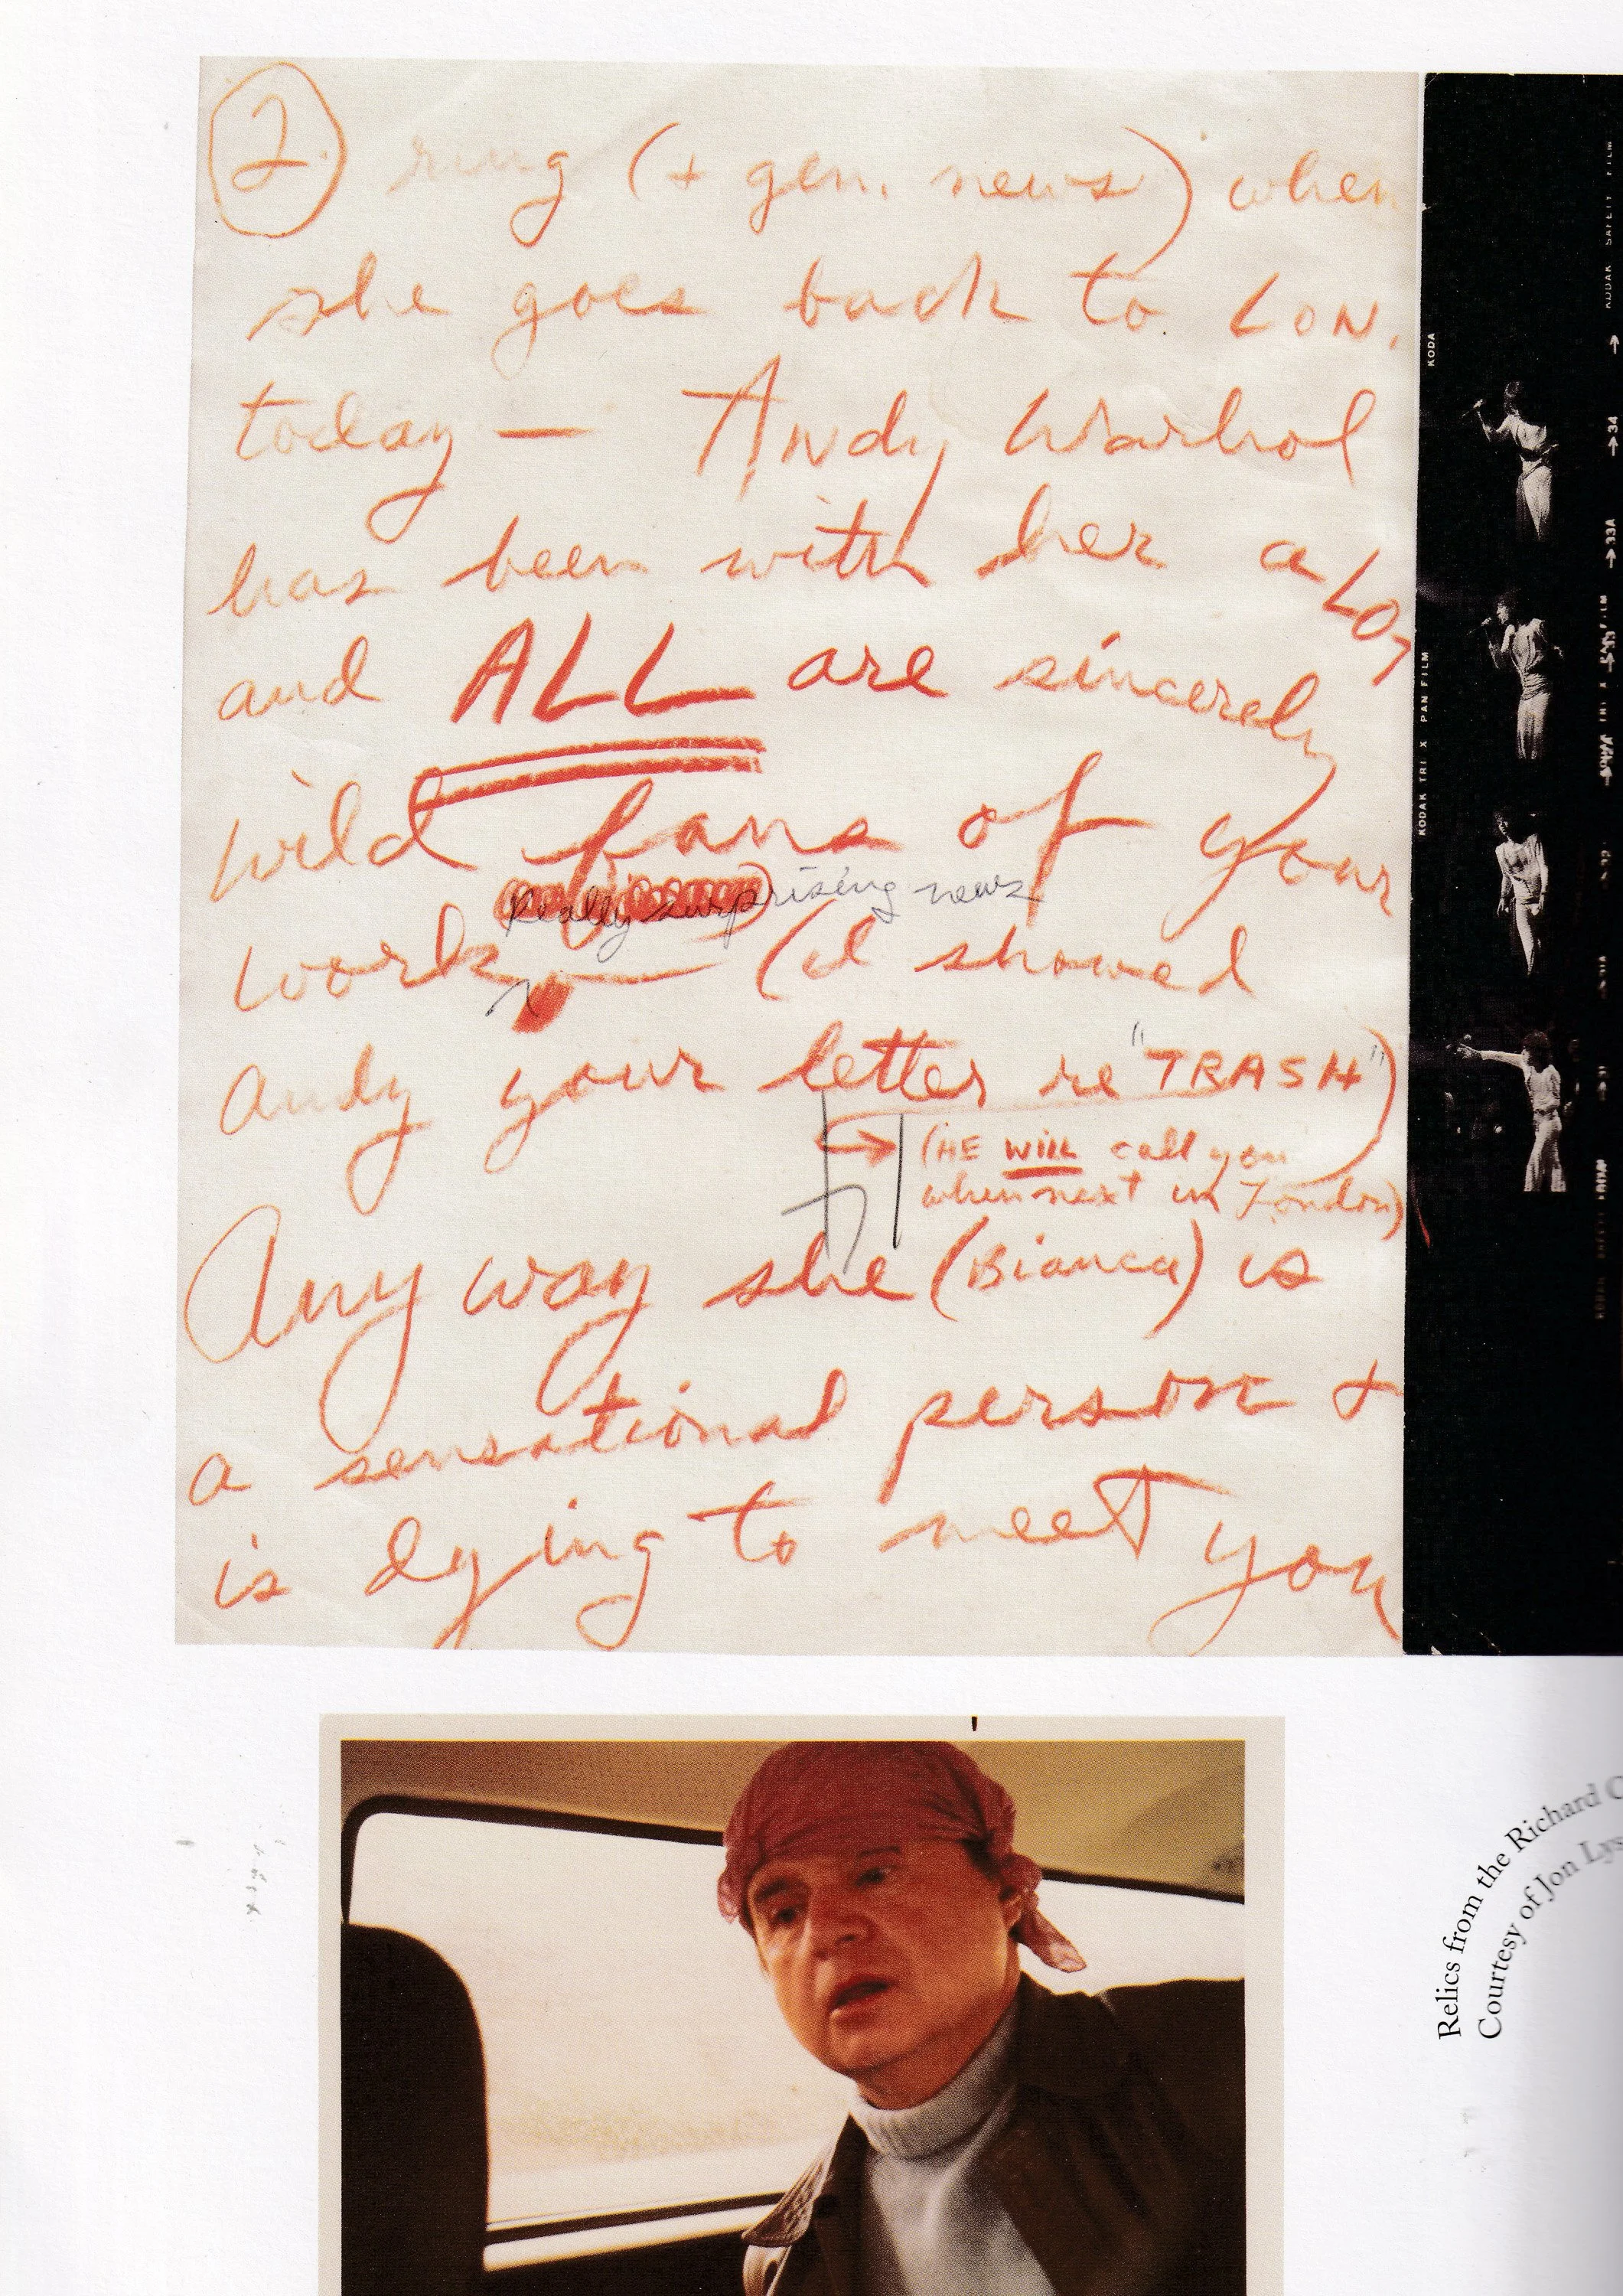 2.
ring (+ gen. news) when
she goes back to LON.
today — Andy Warhol
has been with her a LOT
and ALL are sincerely
wild fans of your
Really surprising news
work — (I showed
Andy your letter re "TRASH")
(HE WILL call you
when next in London)
Any way she (Bianca) is
a sensational person +
is dying to meet you
KODA
KODAK TRI X PAN FILM
KODAK SAFETY FILM
→34
→33A
Relics from the Richard
Courtesy of Jon Lys